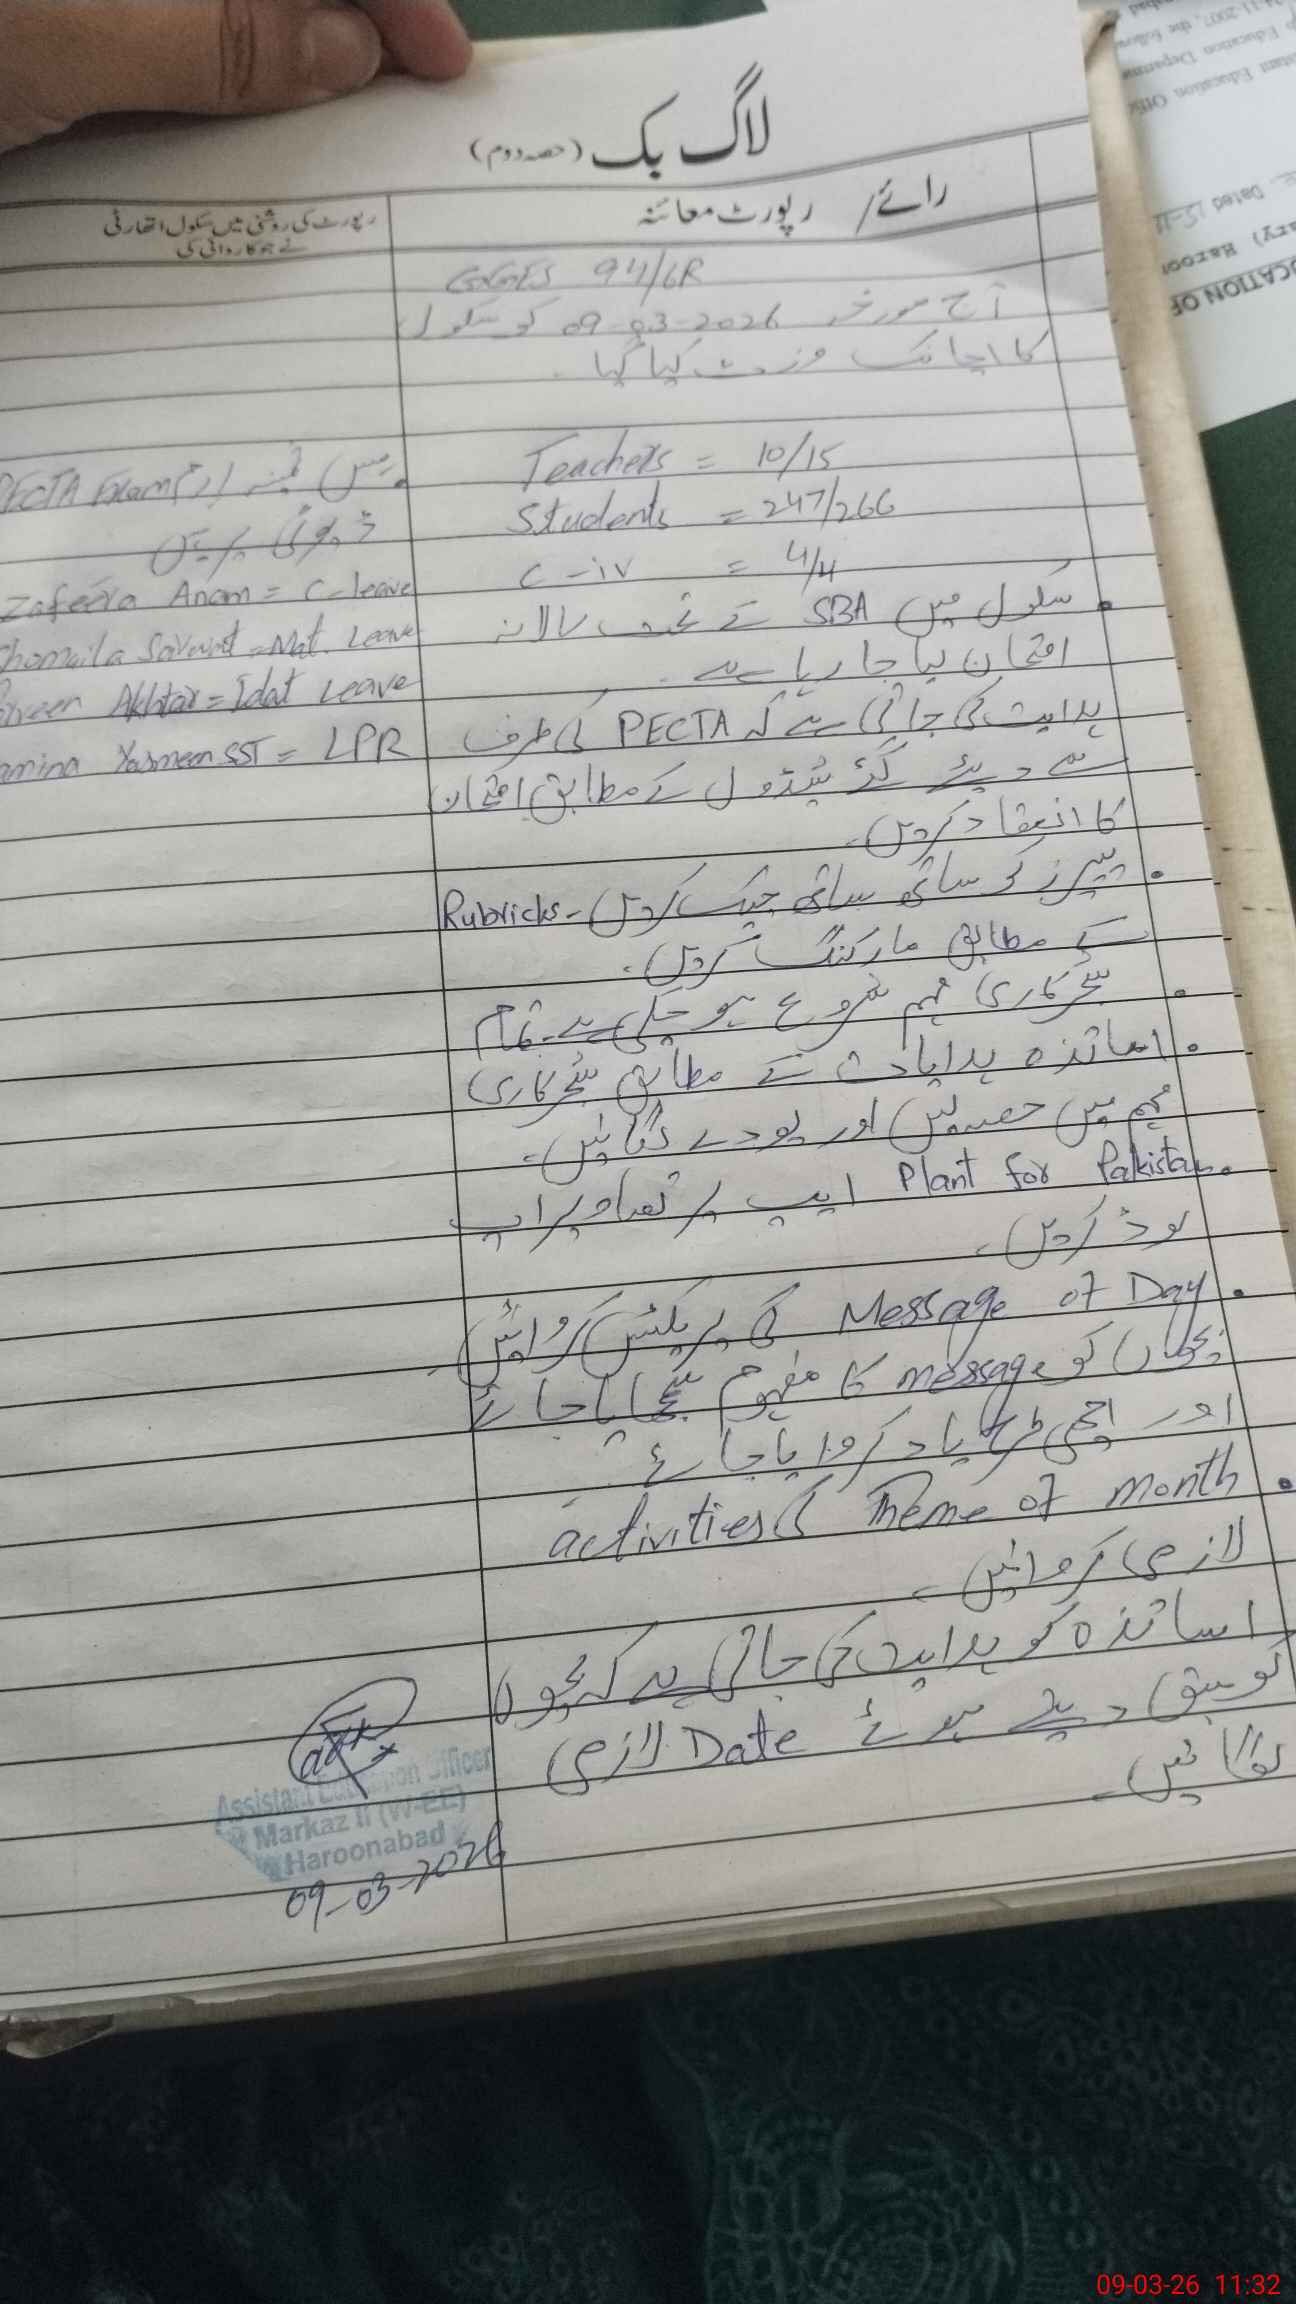 لاگ بک (حصہ دوم)
رائے / رپورٹ معائنہ
رپورٹ کی روشنی میں سکول اتھارٹی
نے جو کاروائی کی
GGES 94/6R
آج مورخہ 09-03-2026 کو سکول
کا اچانک وزٹ کیا گیا۔
Teachers = 10/15
Students = 247/266
C-iv = 4/4
• سکول میں SBA کے تحت سالانہ
امتحان لیا جا رہا ہے۔
ہدایت کی جاتی ہے کہ PECTA کی طرف
سے دیئے گئے شیڈول کے مطابق امتحان
کا انعقاد کریں۔
• پیپرز کو ساتھ ساتھ چیک کریں۔ Rubricks
کے مطابق مارکنگ کریں۔
• شجرکاری مہم شروع ہو چکی ہے۔ تمام
• اساتذہ ہدایات کے مطابق شجرکاری
مہم میں حصہ لیں اور پودے لگائیں۔
• Plant for Pakistan ایپ پر تصاویر اپ
لوڈ کریں۔
• Message of Day کی پریکٹس کروائیں۔
بچوں کو message کا مفہوم سمجھایا جائے
اور اچھی طرح یاد کروایا جائے۔
• Theme of month کی activities
لازمی کروائیں۔
اساتذہ کو ہدایت کی جاتی ہے کہ بچوں
کو سبق دیتے ہوئے Date لازمی
لگائیں۔
• مس ارم PECTA Exam
ڈیوٹی پر ہیں
Zafeera Anam = C-leave
= Mat. Leave
Akhtar = Idat Leave
Yasmeen SST = LPR
Assistant Education Officer
Markaz II (W-EE)
Haroonabad
09-03-2026
09-03-26 11:32